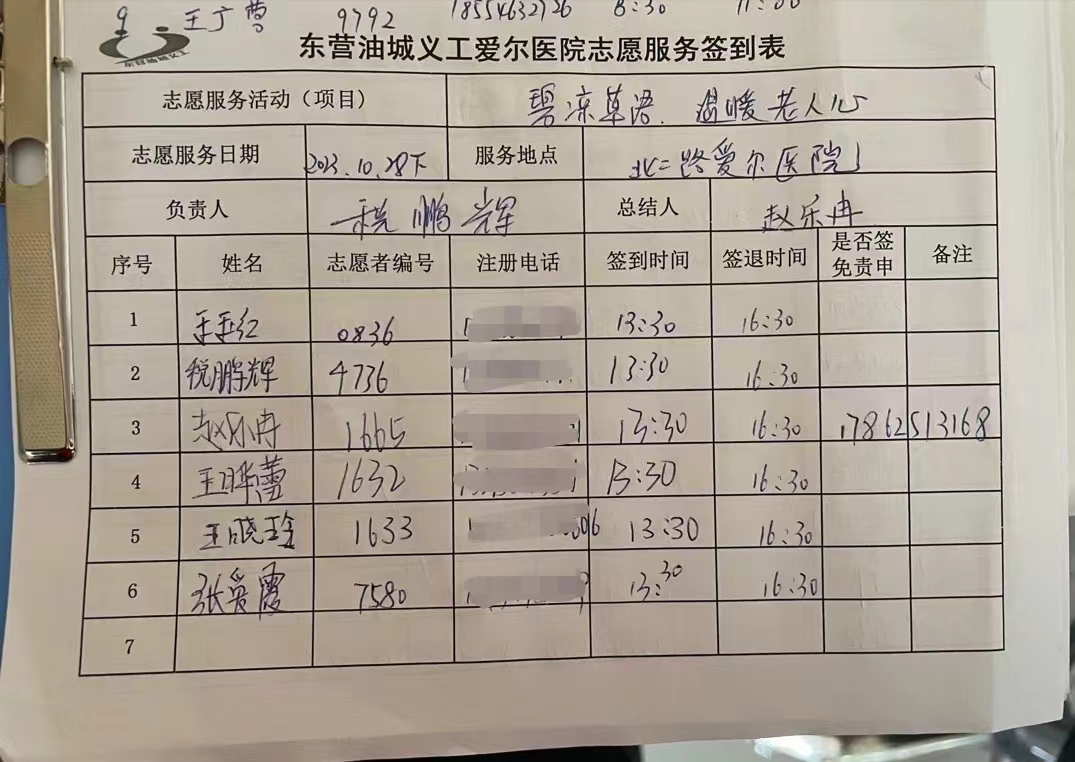 9 王广曹 9792 18554632726 8:30 11:00
东营油城义工
东营油城义工爱尔医院志愿服务签到表
志愿服务活动（项目） 碧凉草语.温暖老人心
志愿服务日期 2023.10.28下 服务地点 北二路爱尔医院
负责人 税鹏辉 总结人 赵乐冉
序号 姓名 志愿者编号 注册电话 签到时间 签退时间 是否签免责申 备注
1 王玉红 0836 13:30 16:30
2 税鹏辉 4736 13:30 16:30
3 赵乐冉 1665 13:30 16:30 17862513168
4 王晔蕾 1632 13:30 16:30
5 王晓玲 1633 13:30 16:30
6 张爱霞 7580 13:30 16:30
7